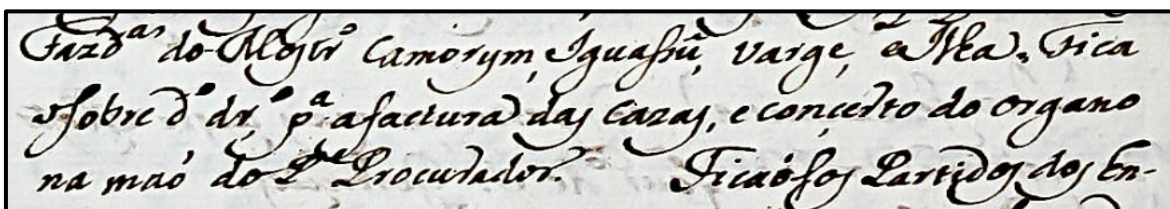 Fazd.as do Mostr.o Camorym, Iguassú, Varge, e Ilha. Fica
o sobre d.o dr.o p.a afactura das Cazas, e concerto do Organo
na maõ do P.e Procurador. Ficaõ os Partidos dos En-